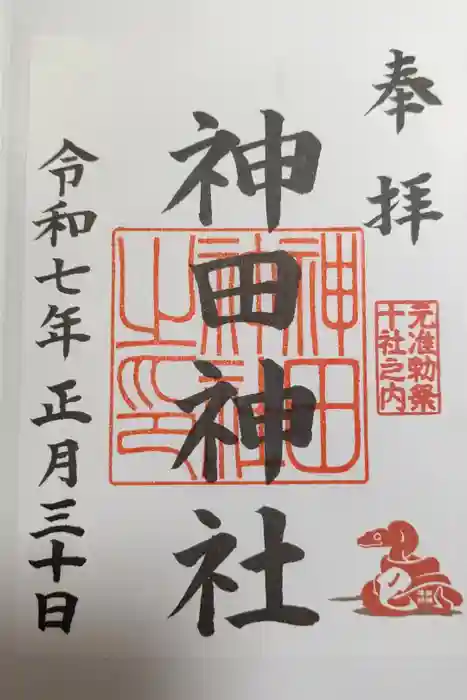 奉拝
元准勅祭
十社之内
神田神社
神田
神社
之印
令和七年正月三十日